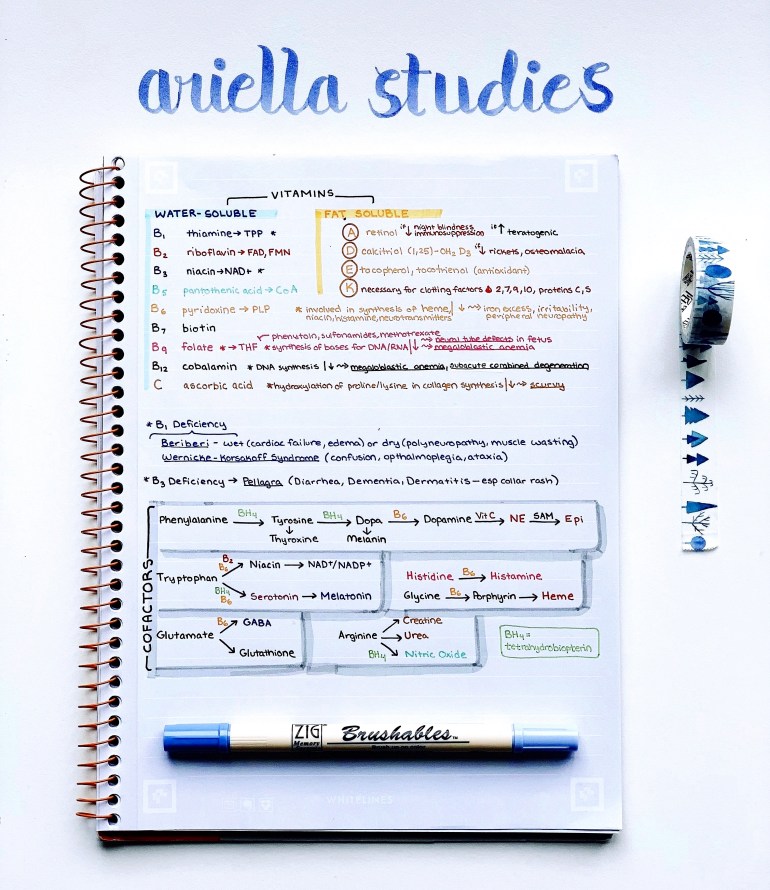 ariella studies
VITAMINS
WATER-SOLUBLE
B1 thiamine→TPP *
B2 riboflavin→FAD, FMN
B3 niacin→NAD+ *
B5 pantothenic acid→CoA
B6 pyridoxine→PLP *involved in synthesis of heme, niacin, histamine, neurotransmitters | ↓ ⇝ iron excess, irritability, peripheral neuropathy
B7 biotin
phenytoin, sulfonamides, methotrexate
B9 folate *→THF *synthesis of bases for DNA/RNA | ↓ ⇝ neural tube defects in fetus
↓ ⇝ megaloblastic anemia
B12 cobalamin *DNA synthesis | ↓ ⇝ megaloblastic anemia, subacute combined degeneration
C ascorbic acid *hydroxylation of proline/lysine in collagen synthesis | ↓ ⇝ scurvy
FAT SOLUBLE
A retinol if ↓ night blindness immunosuppression if ↑ teratogenic
D calcitriol (1,25)-OH2 D3 if ↓ rickets, osteomalacia
E tocopherol, tocotrienol (antioxidant)
K necessary for clotting factors 2,7,9,10, proteins C,S
* B1 Deficiency
Beriberi - wet (cardiac failure, edema) or dry (polyneuropathy, muscle wasting)
Wernicke-Korsakoff Syndrome (confusion, opthalmoplegia, ataxia)
*B3 Deficiency → Pellagra (Diarrhea, Dementia, Dermatitis-esp collar rash)
COFACTORS
Phenylalanine BH4→ Tyrosine BH4→ Dopa B6→ Dopamine Vit C→ NE SAM→ Epi
↓ Thyroxine ↓ Melanin
Tryptophan B2 B6 → Niacin → NAD+/NADP+
BH4 B6 → Serotonin → Melatonin
Histidine B6→ Histamine
Glycine B6→ Porphyrin → Heme
Glutamate B6 → GABA
→ Glutathione
Arginine → Creatine
→ Urea
BH4 → Nitric Oxide
BH4=
tetrahydrobiopterin
ZIG
Memory
Brushables™
WHITELINES